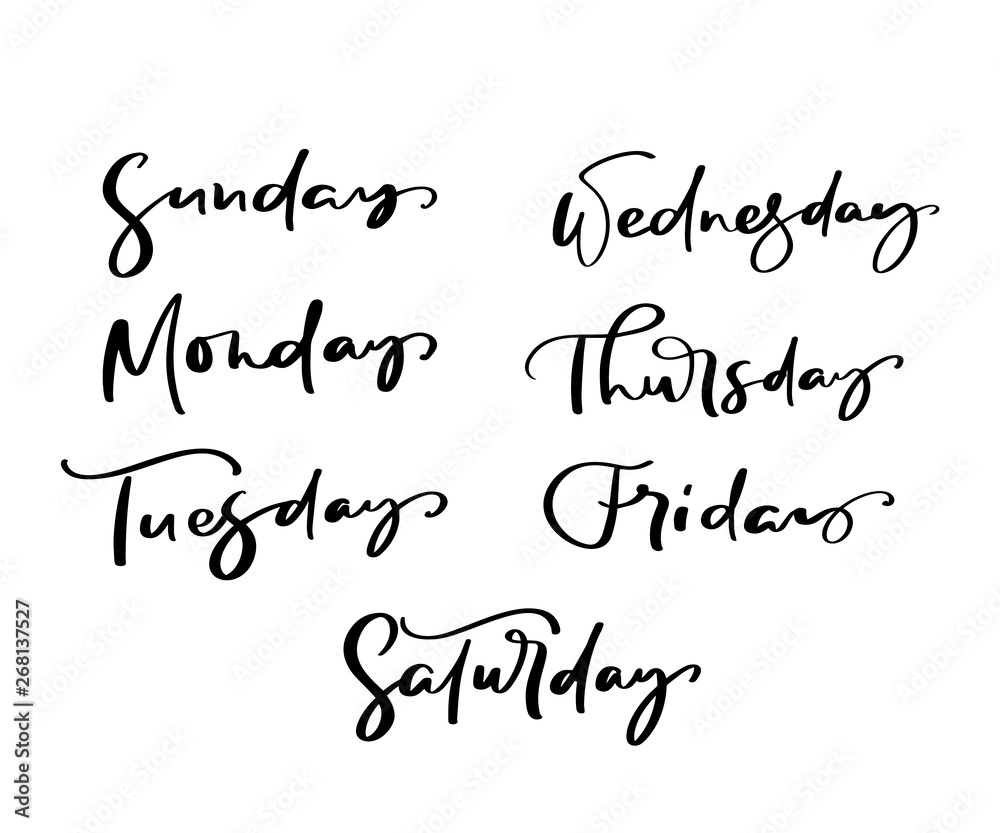 Sunday
Monday
Tuesday
Wednesday
Thursday
Friday
Saturday
Adobe Stock | #268137527